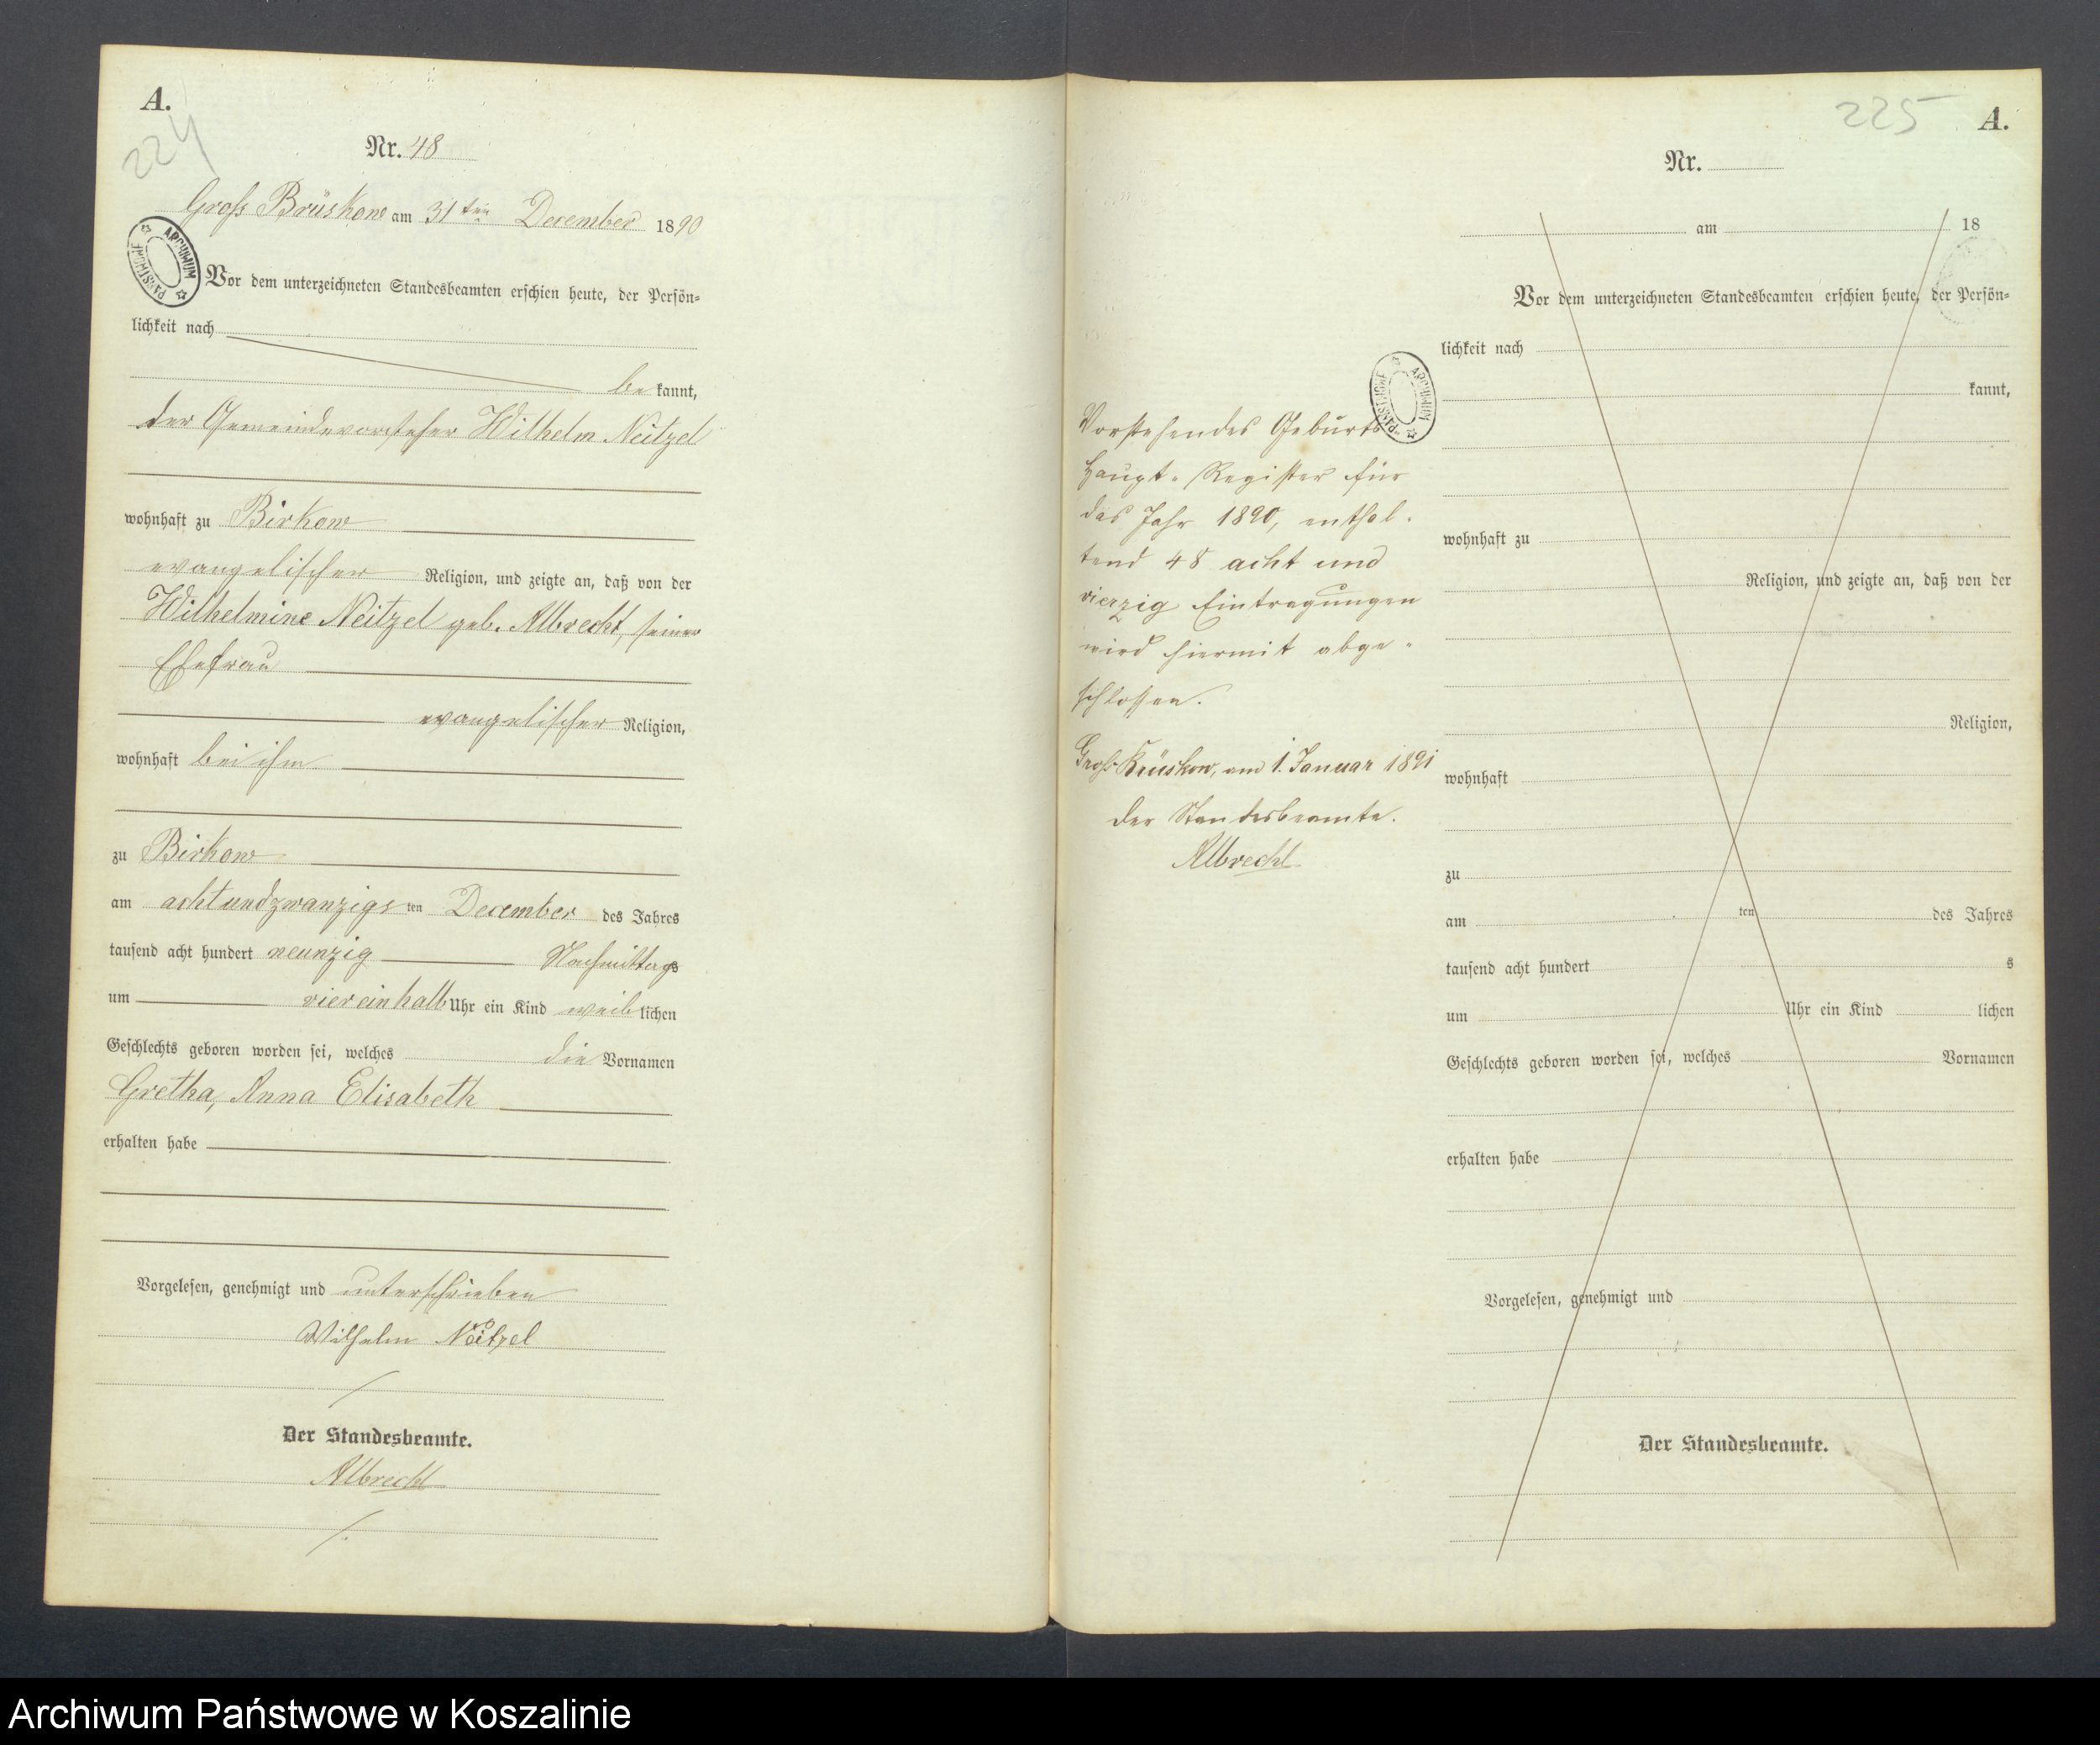 A.
224
Nr. 48
Groß Brüskow am 31ten December 1890
ARCHIWUM PAŃSTWOWE
Vor dem unterzeichneten Standesbeamten erschien heute, der Persön=
lichkeit nach
be kannt,
der Gemeindevorsteher Wilhelm Neitzel
wohnhaft zu Birkow
evangelischer Religion, und zeigte an, daß von der
Wilhelmine Neitzel geb. Albrecht, seiner
Ehefrau
evangelischer Religion,
wohnhaft bei ihm
zu Birkow
am achtundzwanzigs ten December des Jahres
tausend acht hundert neunzig Nachmittags
um viereinhalb Uhr ein Kind weib lichen
Geschlechts geboren worden sei, welches die Vornamen
Gretha, Anna Elisabeth
erhalten habe
Vorgelesen, genehmigt und unterschrieben
Wilhelm Neitzel
Der Standesbeamte.
Albrecht
225
A.
ARCHIWUM PAŃSTWOWE
Vorstehendes Geburts
Haupt-Register für
das Jahr 1890, enthal-
tend 48 acht und
vierzig Eintragungen
wird hiermit abge-
schlossen.
Groß Brüskow, am 1. Januar 1891
Der Standesbeamte.
Albrecht
Nr.
am 18
Vor dem unterzeichneten Standesbeamten erschien heute, der Persön=
lichkeit nach
kannt,
wohnhaft zu
Religion, und zeigte an, daß von der
Religion,
wohnhaft
zu
am ten des Jahres
tausend acht hundert s
um Uhr ein Kind lichen
Geschlechts geboren worden sei, welches Vornamen
erhalten habe
Vorgelesen, genehmigt und
Der Standesbeamte.
Archiwum Państwowe w Koszalinie